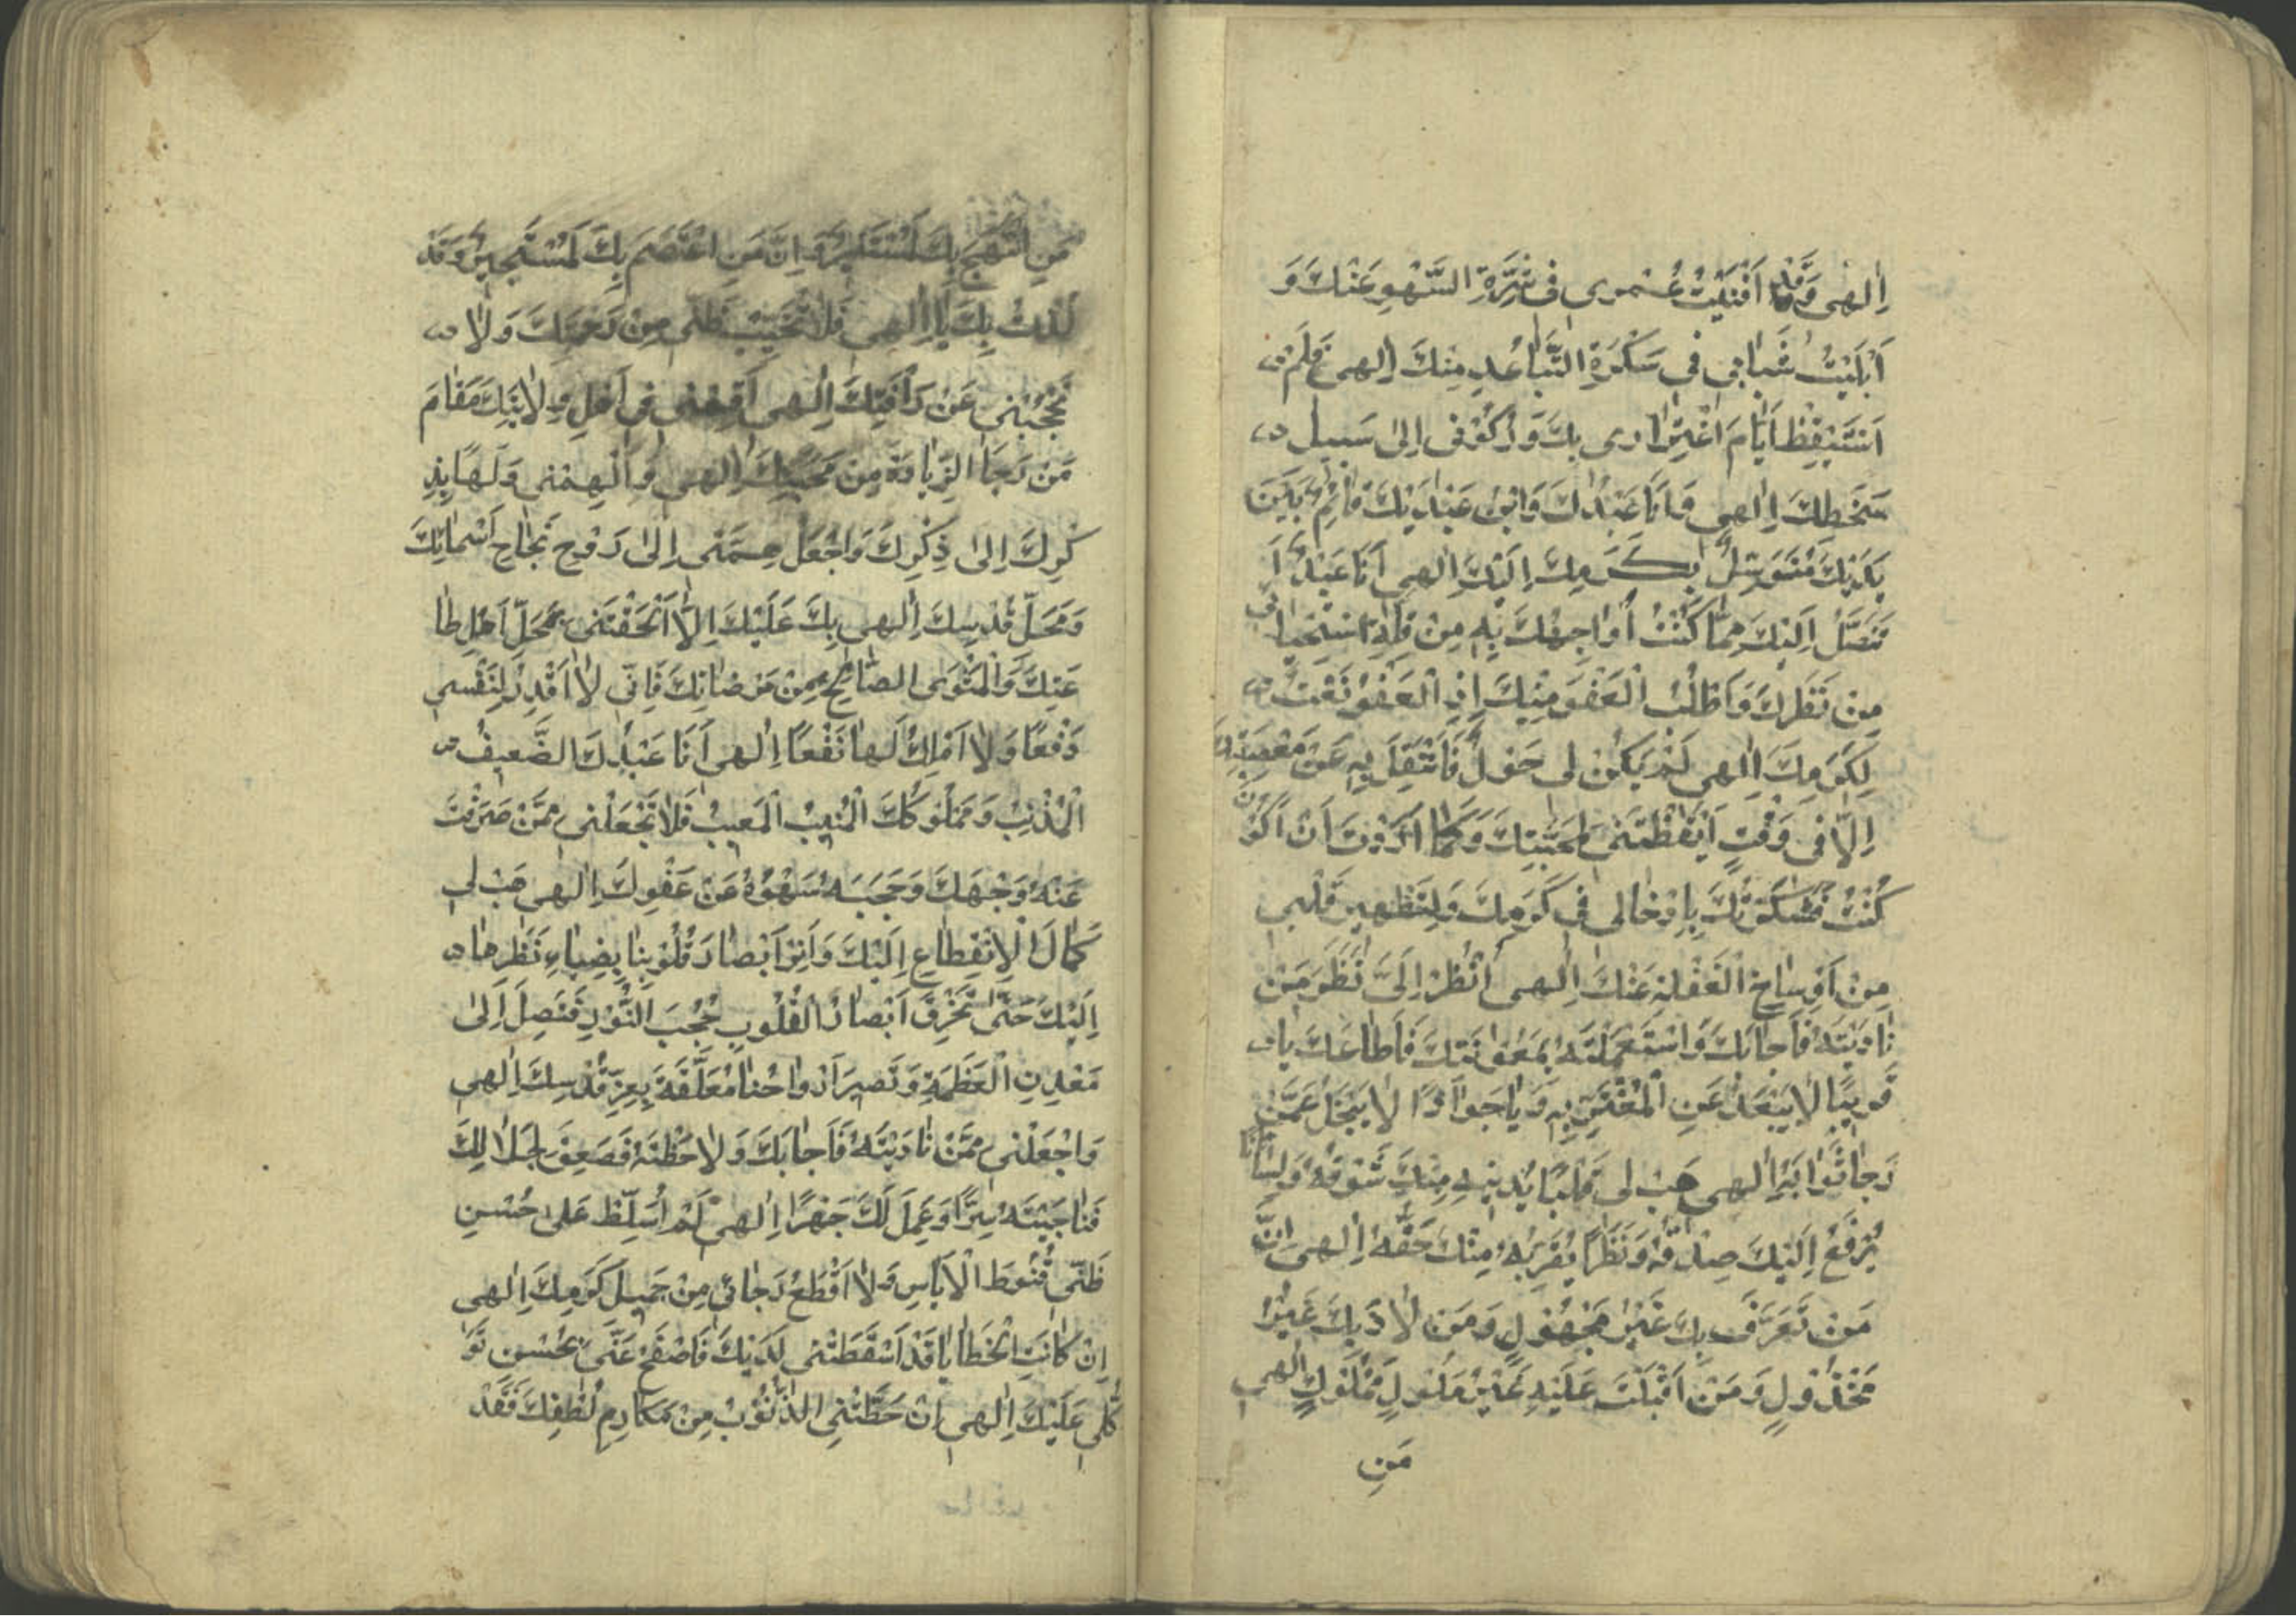 اِلٰهى وَقَدْ اَفْنَيْتُ عُـمْرى فى شِرَّةِ السَّهْوِ عَنْكَ وَ
اَبْلَيْتُ شَبابى فى سَكْرَةِ التَّباعُدِ مِنْكَ اِلهى فَلَمْ
اَسْتَيْقِظْ اَيّامَ اغْتِرارى بِكَ وَرُكُونى اِلىٰ سَبيلِ
سَخَطِكَ اِلٰهى وَاَنَا عَبْدُكَ وَابْنُ عَبْدَيْكَ قائِمٌ بَيْنَ
يَدَيْكَ مُتَوَسِّلٌ بِكَرَمِكَ اِلَيْكَ اِلٰهى اَنَا عَبْدٌ اَ
تَنَصَّلُ اِلَيْكَ مِمّا كُنْتُ اُواجِهُكَ بِهِ مِنْ قِلَّةِ اسْتِحْيائى
مِنْ نَظَرِكَ وَاَطْلُبُ الْعَفْوَ مِنْكَ اِذِ الْعَفْوُ نَعْتٌ
لِكَرَمِكَ اِلٰهى لَمْ يَكُنْ لى حَوْلٌ فَاَنْتَقِلَ بِهِ عَنْ مَعْصِيَتِكَ
اِلّا فى وَقْتٍ اَيْقَظْتَنى لِمَحَبَّتِكَ وَكَمَا اَرَدْتَ اَنْ اَكُونَ
كُنْتُ فَشَكَرْتُكَ بِاِدْخالى فى كَرَمِكَ وَلِتَطْهيرِ قَلْبى
مِنْ اَوْساخِ الْغَفْلَةِ عَنْكَ اِلٰهى اُنْظُرْ اِلَىَّ نَظَرَ مَنْ
نادَيْتَهُ فَاَجابَكَ وَاسْتَعْمَلْتَهُ بِمَعُونَتِكَ فَاَطاعَكَ يا
قَريبًا لايَبْعَدُ عَنِ الْمُغْتَرِّ بِهِ وَيا جَوادًا لايَبْخَلُ عَمَّنْ
رَجا ثَوابَهُ اِلٰهى هَبْ لى قَلْبًا يُدْنيهِ مِنْكَ شَوْقُهُ وَلِسانًا
يُرْفَعُ اِلَيْكَ صِدْقُهُ وَنَظَرًا يُقَرِّبُهُ مِنْكَ حَقُّهُ اِلٰهى اِنَّ
مَنْ تَعَرَّفَ بِكَ غَيْرُ مَجْهُولٍ وَمَنْ لاذَ بِكَ غَيْرُ
مَخْذُولٍ وَمَنْ اَقْبَلْتَ عَلَيْهِ غَيْرُ مَمْلُوكٍ اِلٰهى
مَنِ
مَنِ انْتَهَجَ بِكَ لَمُسْتَنيرٌ وَاِنَّ مَنِ اعْتَصَمَ بِكَ لَمُسْتَجيرٌ وَقَدْ
لُذْتُ بِكَ يا اِلٰهى فَلا تُخَيِّبْ ظَنّى مِنْ رَحْمَتِكَ وَلا
تَحْجُبْنى عَنْ رَأْفَتِكَ اِلٰهى اَقِمْنى فى اَهْلِ وِلايَتِكَ مَقامَ
مَنْ رَجَا الزِّيادَةَ مِنْ مَحَبَّتِكَ اِلٰهى وَاَلْهِمْنى وَلَهًا بِذِ
كْرِكَ اِلىٰ ذِكْرِكَ وَاجْعَلْ هِمَّتى اِلىٰ رَوْحِ نَجاحِ اَسْمائِكَ
وَمَحَلِّ قُدْسِكَ اِلٰهى بِكَ عَلَيْكَ اِلّا اَلْحَقْتَنى بِمَحَلِّ اَهْلِ طا
عَتِكَ وَالْمَثْوَى الصّالِحِ مِنْ مَرْضاتِكَ فَاِنّى لا اَقْدِرُ لِنَفْسى
دَفْعًا وَلا اَمْلِكُ لَها نَفْعًا اِلٰهى اَنَا عَبْدُكَ الضَّعيفُ
الْمُذْنِبُ وَمَمْلُوكُكَ الْمُنيبُ الْمَعيبُ فَلا تَجْعَلْنى مِمَّنْ صَرَفْتَ
عَنْهُ وَجْهَكَ وَحَجَبَهُ سَهْوُهُ عَنْ عَفْوِكَ اِلٰهى هَبْ لى
كَمالَ الْاِنْقِطاعِ اِلَيْكَ وَاَنِرْ اَبْصارَ قُلُوبِنا بِضِياءِ نَظَرِها
اِلَيْكَ حَتّىٰ تَخْرِقَ اَبْصارُ الْقُلُوبِ حُجُبَ النُّورِ فَتَصِلَ اِلىٰ
مَعْدِنِ الْعَظَمَةِ وَتَصيرَ اَرْواحُنا مُعَلَّقَةً بِعِزِّ قُدْسِكَ اِلٰهى
وَاجْعَلْنى مِمَّنْ نادَيْتَهُ فَاَجابَكَ وَلاحَظْتَهُ فَصَعِقَ لِجَلالِكَ
فَناجَيْتَهُ سِرًّا وَعَمِلَ لَكَ جَهْرًا اِلٰهى لَمْ اُسَلِّطْ عَلىٰ حُسْنِ
ظَنّى قُنُوطَ الْاَياسِ وَلا اَقْطَعُ رَجائى مِنْ جَميلِ كَرَمِكَ اِلٰهى
اِنْ كانَتِ الْخَطايا قَدْ اَسْقَطَتْنى لَدَيْكَ فَاصْفَحْ عَنّى بِحُسْنِ تَوَ
كُّلى عَلَيْكَ اِلٰهى اِنْ حَطَّتْنِى الذُّنُوبُ مِنْ مَكارِمِ لُطْفِكَ فَقَدْ